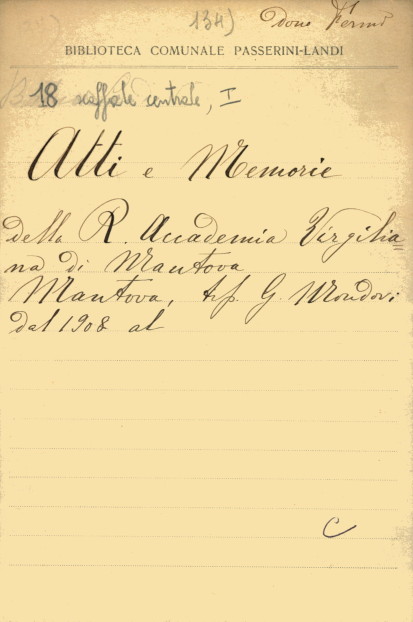 134) dono Fermi
BIBLIOTECA COMUNALE PASSERINI-LANDI
18 scaffale centrale, I
Atti e Memorie
della R. Accademia Virgilia=
na di Mantova
Mantova, tip. G. Mondovi
dal 1908 al
C